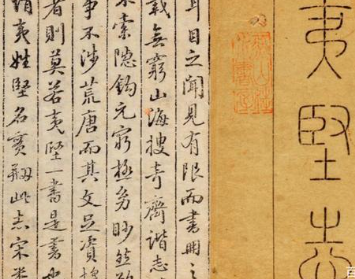 夷堅志
耳目之聞見有限而書冊之
載無窮山海搜奇齊諧志
不索隱鈎元窮極眇然
事不涉荒唐而其文足資
者則莫若夷堅一書是書
謂夷姓堅名實此志宋